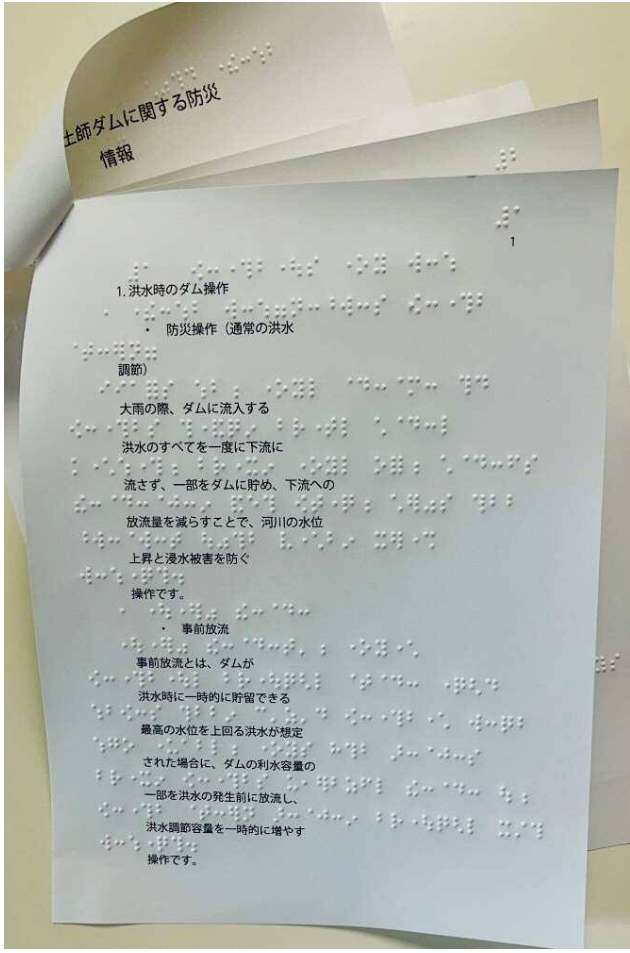 土師ダムに関する防災
情報
1
1. 洪水時のダム操作
・ 防災操作（通常の洪水
調節）
大雨の際、ダムに流入する
洪水のすべてを一度に下流に
流さず、一部をダムに貯め、下流への
放流量を減らすことで、河川の水位
上昇と浸水被害を防ぐ
操作です。
・ 事前放流
事前放流とは、ダムが
洪水時に一時的に貯留できる
最高の水位を上回る洪水が想定
された場合に、ダムの利水容量の
一部を洪水の発生前に放流し、
洪水調節容量を一時的に増やす
操作です。